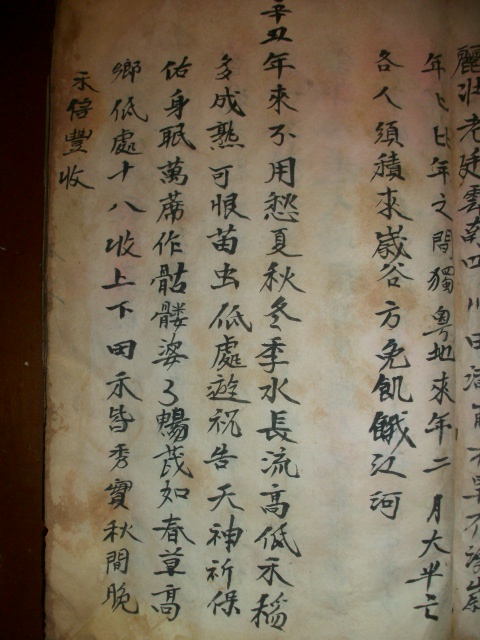 老廷雲南四川田
年之間獨粤地來年二月大半亡
各人須積來歲谷方免飢餓江河
辛丑年來不用愁夏秋冬季水長流高低禾稻
多成熟可恨苗虫低處遊祝告天神祈保
佑身眠萬蓆作骷髏婆了暢茂如春草高
鄉低處十八收上下田禾皆秀實秋間晚
禾得豐收